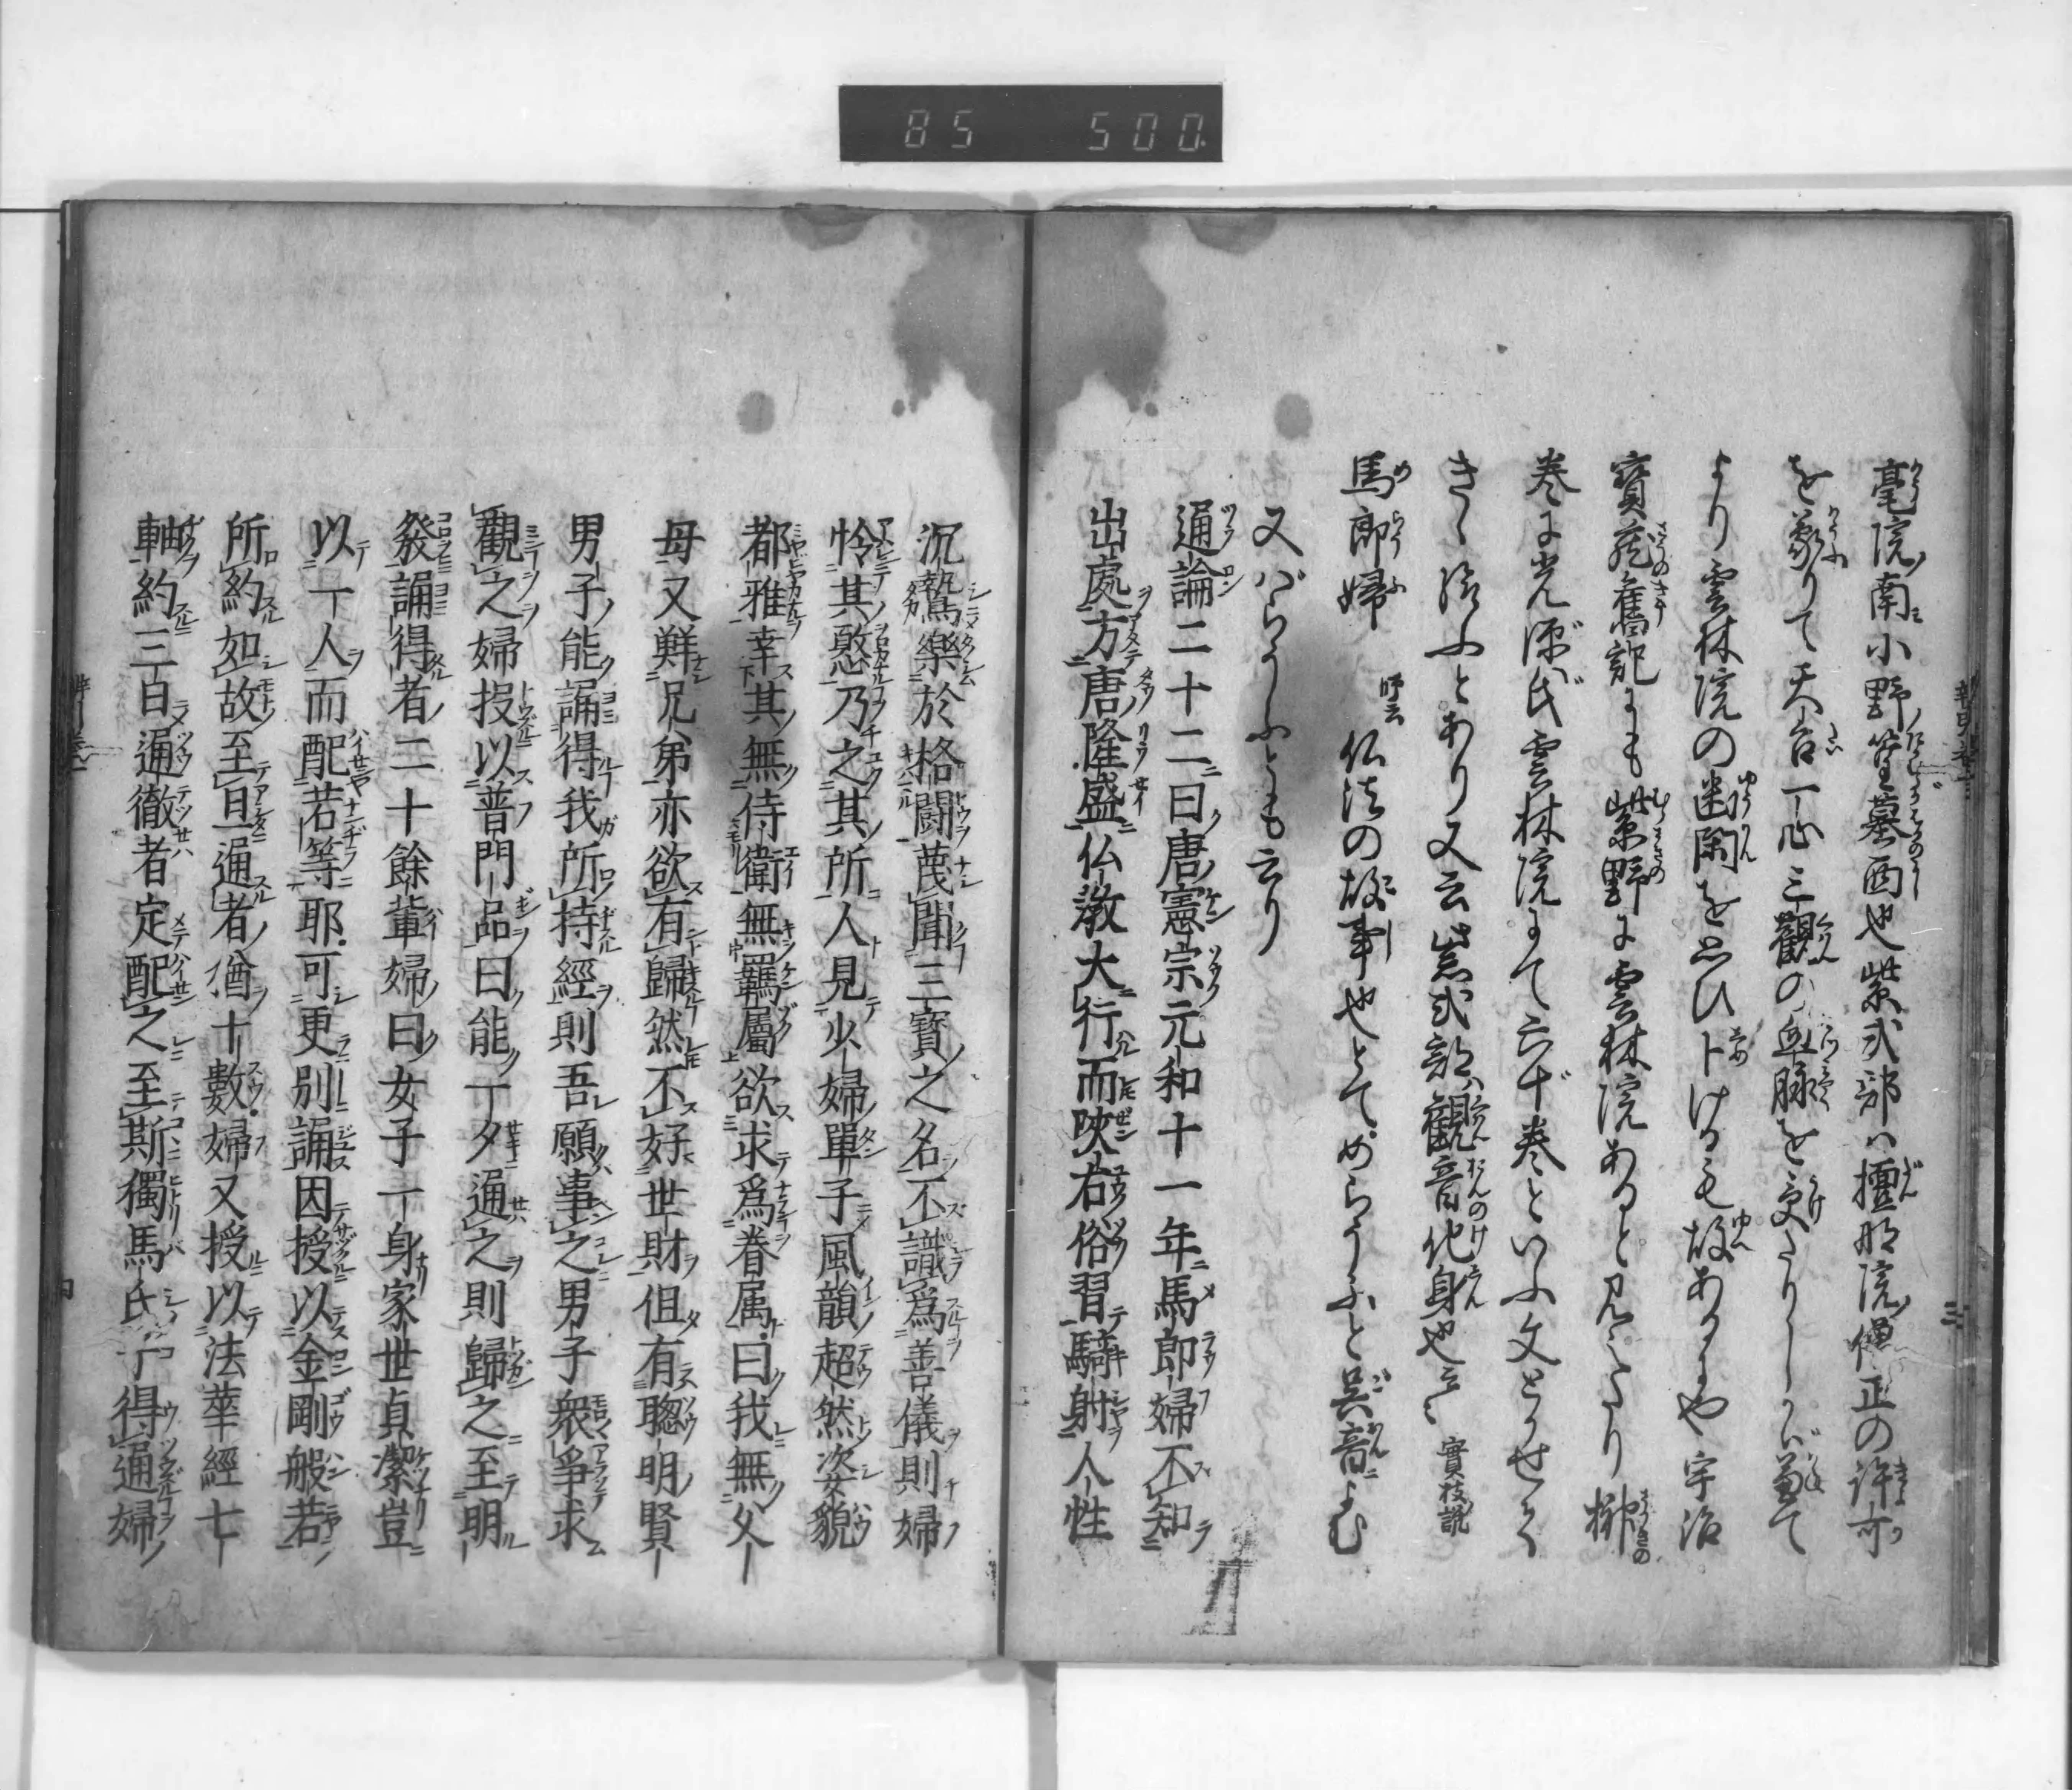 85 500
毫院南小野篁墓西也紫式部ハ檀那院僧正の許可
を蒙りて天台一心三觀の血脉を受たりしかバ兼て
より雲林院の幽閑を思ひトけるも故あるにや宇治
寳蔵舊記にも紫野に雲林院あると見へたり榊
巻に光源氏雲林院にて六十巻といふ文とかせ
きゝ給ふとあり又云紫式部ハ觀音化身也云〻 實枝説
馬郎婦 師云 仏法の故事也とてめらうふと呉音によむ
又バらうふとも云り
通論二十二曰唐憲宗元和十一年馬郎婦不知
出處方唐隆盛仏教大行而陝右俗習騎射人性
沉鷙樂於格闘蔑聞三寳之名不識為善儀則婦
怜其憨乃之其所人見少婦單子風韻超然姿貌
都雅幸其無侍衛無羈屬欲求為眷属曰我無父
母又鮮兄弟亦欲有歸然不好世財但有聰明賢
男子能誦得我所持經則吾願事之男子衆爭求
觀之婦授以普門品曰能一夕通之則歸之至明
發誦得者二十餘輩婦曰女子一身家世貞潔豈
以一人而配若等耶可更別誦因授以金剛般若
所約如故至旦通者猶十數婦又授以法華經七
軸約三日通徹者定配之至斯獨馬氏子得通婦